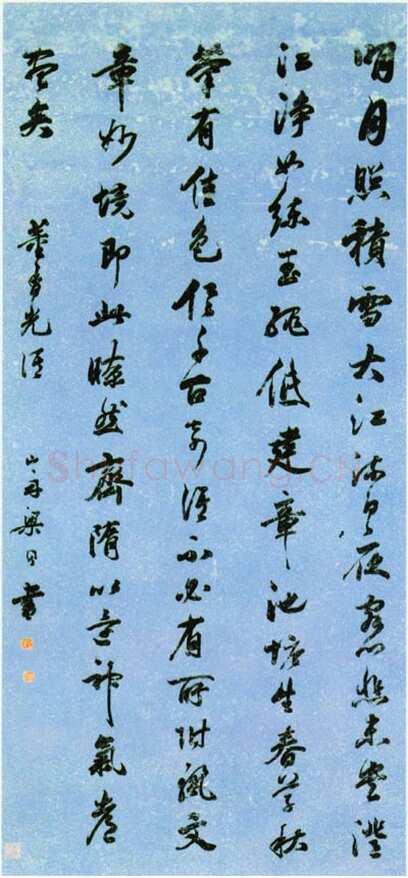 明月照積雪大江流日夜客心悲未央澄
江淨如練玉繩低建章池塘生春草秋
菊有佳色俱千古奇語不必有所附麗文
章妙境即此瞭然齊隋以還神氣都
盡矣 董香光語 山舟梁同書
Shufawang.CN